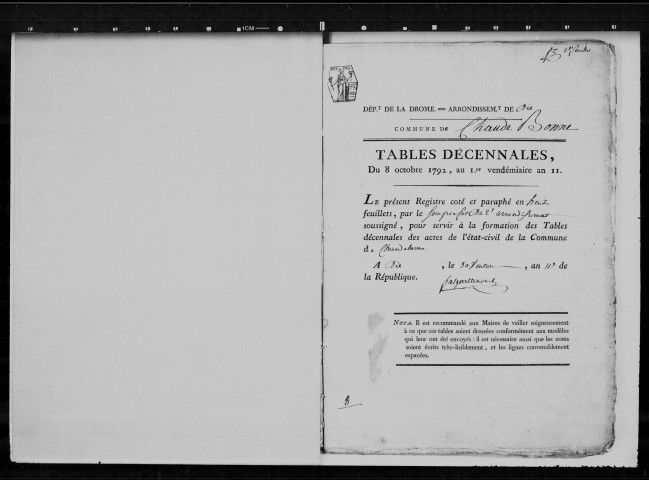 1CM
DÉP.T DE LA DROME. == ARRONDISSEM.T DE Die
COMMUNE DE Chaude Bonne
TABLES DÉCENNALES,
Du 8 octobre 1792, au 1.er vendémiaire an 11.
LE présent Registre coté et paraphé en huit
feuillets, par le sous préfet de l'arrondissement
soussigné, pour servir à la formation des Tables
décennales des actes de l'état-civil de la Commune
de Chaudebonne
A Die , le 30 , an 11e de
la République.
NOTA. Il est recommandé aux Maires de veiller soigneusement
à ce que ces tables soient dressées conformément aux modèles
qui leur ont été envoyés : il est nécessaire aussi que les noms
soient écrits très-lisiblement, et les lignes convenablement
espacées.
8